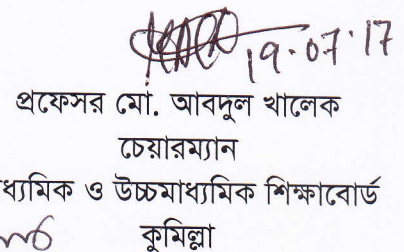 19.07.17
প্রফেসর মো. আবদুল খালেক
চেয়ারম্যান
ধ্যমিক ও উচ্চমাধ্যমিক শিক্ষাবোর্ড
কুমিল্লা